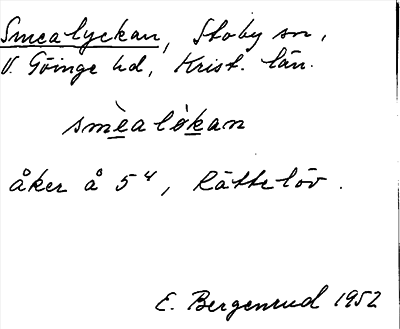 Smealyckan, Stoby sn,
V. Göinge hd, Krist. län.
smèalø̀kan
åker å 5⁴, Rättelöv.
E. Bergenrud 1952